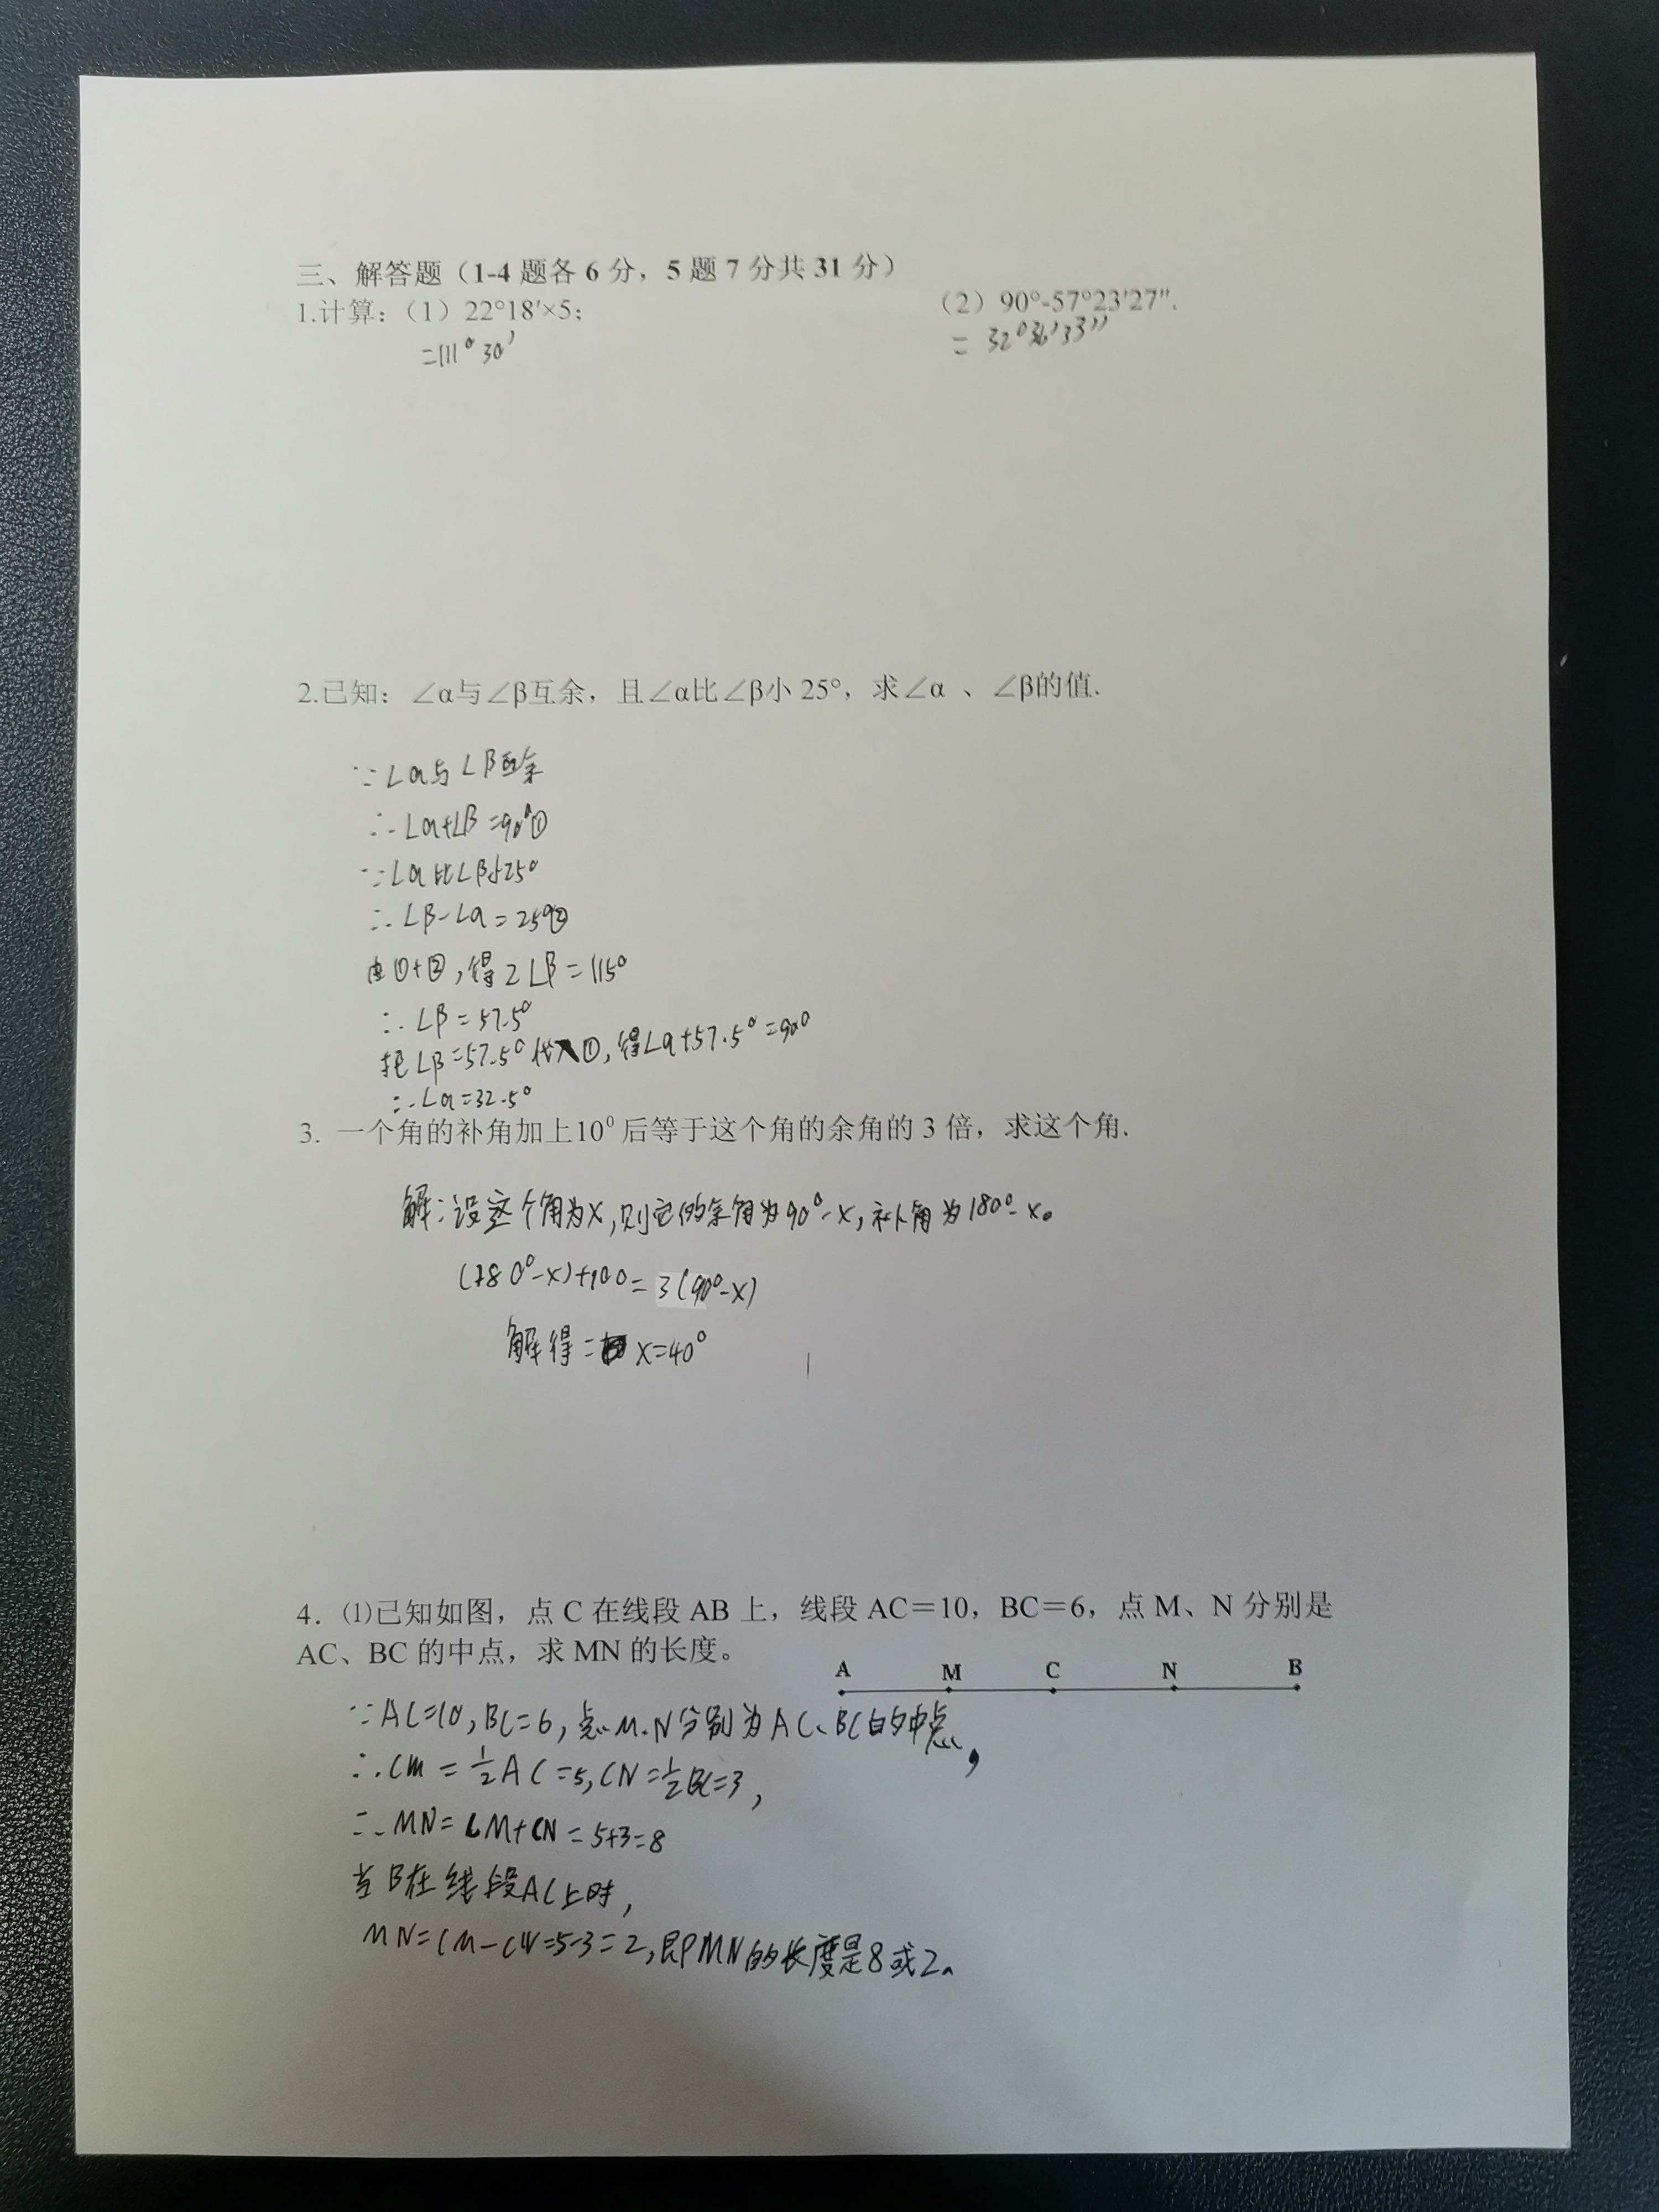 三、解答题（1-4 题各 6 分，5 题 7 分共 31 分）
1.计算：（1）22°18′×5；
（2）90°-57°23′27″.
=111°30′
= 32°36′33″
2.已知：∠α与∠β互余，且∠α比∠β小 25°，求∠α 、∠β的值.
∵∠α与∠β互余
∴∠α+∠β=90°①
∵∠α比∠β小25°
∴∠β-∠α=25°②
由①+②，得2∠β=115°
∴∠β=57.5°
把∠β=57.5°代入①，得∠α+57.5°=90°
∴∠α=32.5°
3. 一个角的补角加上10⁰后等于这个角的余角的 3 倍，求这个角.
解：设这个角为x，则它的余角为90°-x，补角为180°-x。
(180°-x)+10°=3(90°-x)
解得：x=40°
4. ⑴已知如图，点 C 在线段 AB 上，线段 AC＝10，BC＝6，点 M、N 分别是
AC、BC 的中点，求 MN 的长度。
A M C N B
∵AC=10，BC=6，点M、N分别为AC、BC的中点，
∴CM=½AC=5，CN=½BC=3，
∴MN=CM+CN=5+3=8
当B在线段AC上时，
MN=CM-CN=5-3=2，即MN的长度是8或2。